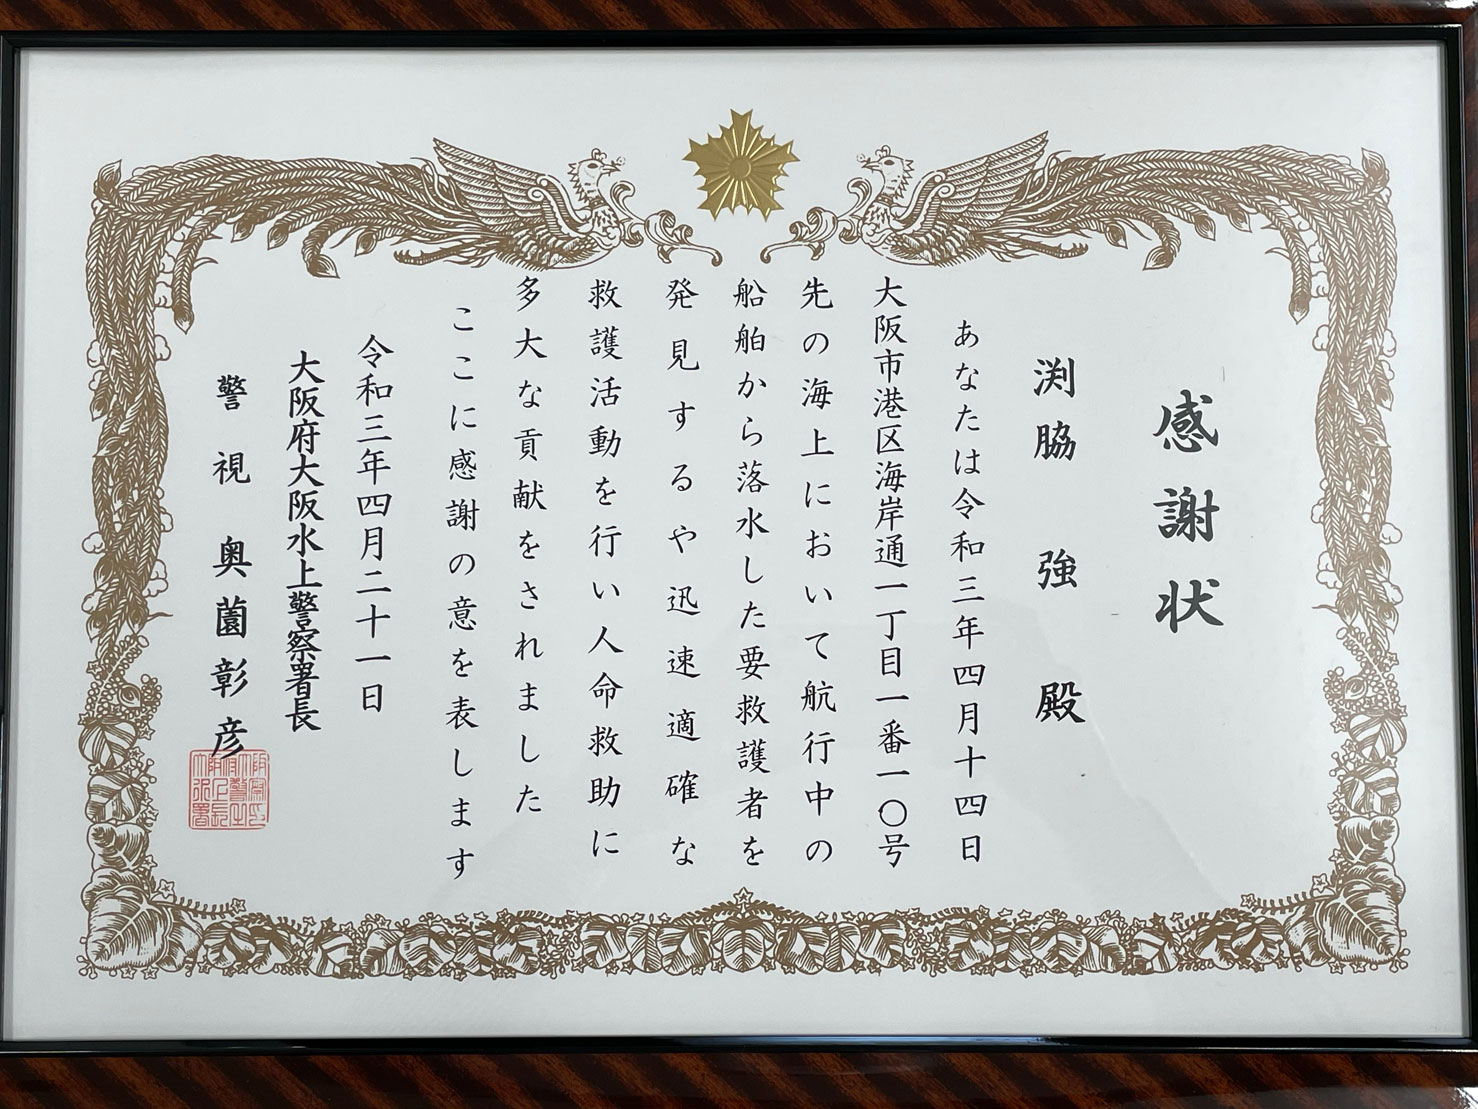 感謝状
渕脇 強 殿
あなたは令和三年四月十四日
大阪市港区海岸通一丁目一番一〇号
先の海上において航行中の
船舶から落水した要救護者を
発見するや迅速適確な
救護活動を行い人命救助に
多大な貢献をされました
ここに感謝の意を表します
令和三年四月二十一日
大阪府大阪水上警察署長
警視 奥薗彰彦